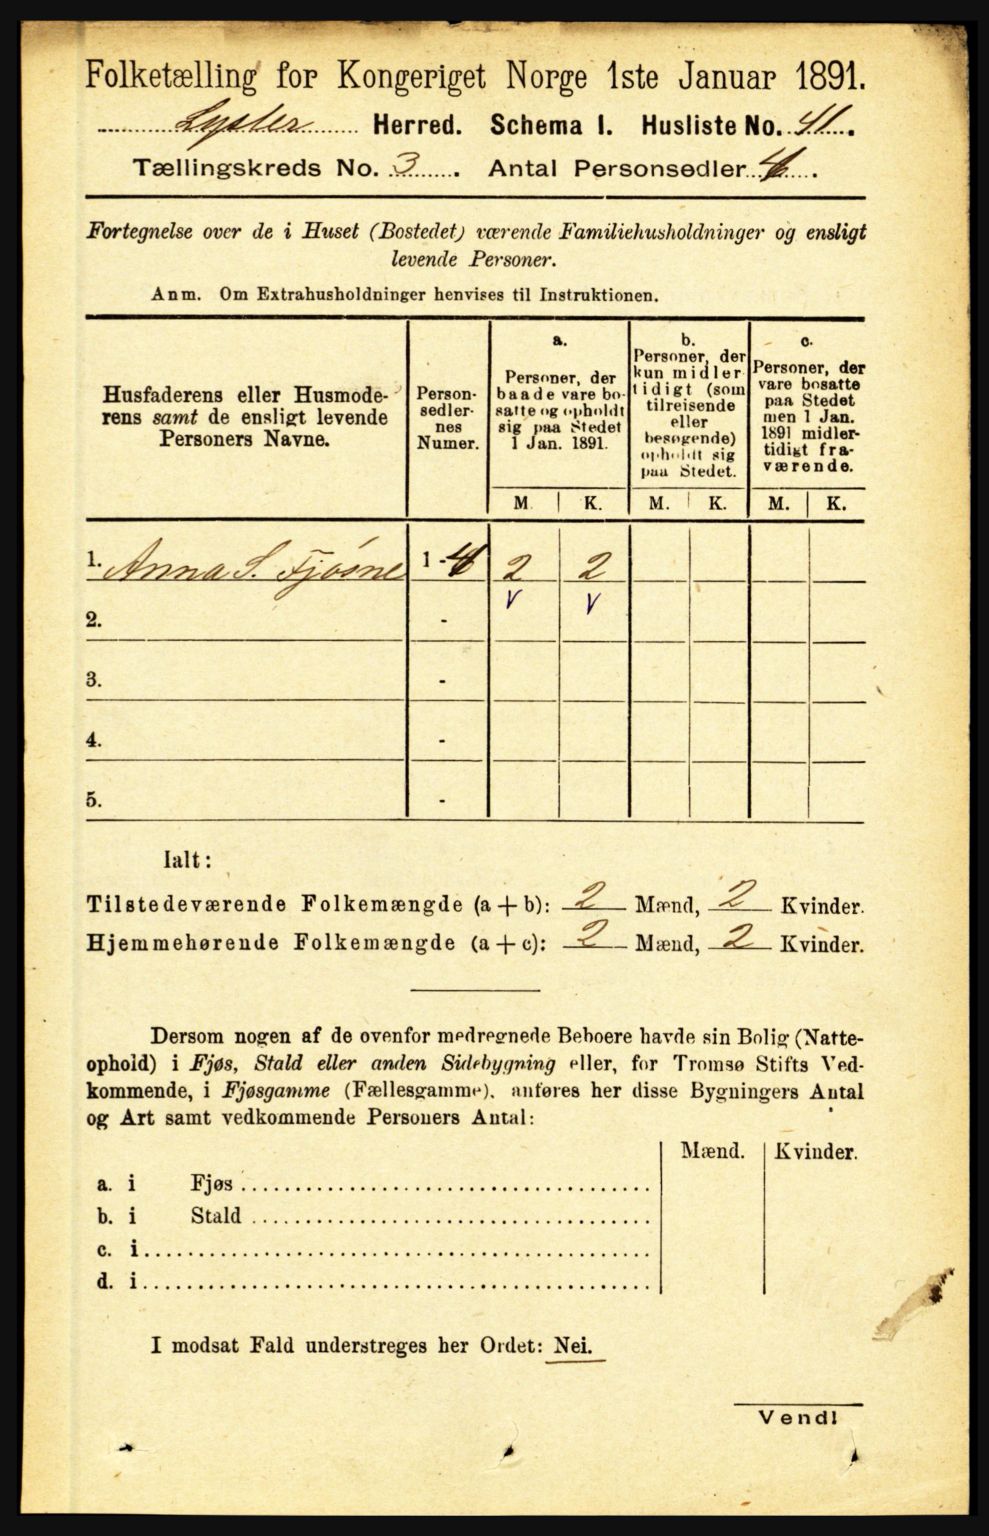 Folketælling for Kongeriget Norge 1ste Januar 1891.
Lyster Herred. Schema I. Husliste No. 41.
Tællingskreds No. 3. Antal Personsedler 4.
Fortegnelse over de i Huset (Bostedet) værende Familiehusholdninger og ensligt
levende Personer.
Anm. Om Extrahusholdninger henvises til Instruktionen.
Husfaderens eller Husmode-
rens samt de ensligt levende
Personers Navne.
Person-
sedler-
nes
Numer.
a.
Personer, der
baade vare bo-
satte og opholdt
sig paa Stedet
1 Jan. 1891.
b.
Personer, der
kun midler
tidigt (som
tilreisende
eller
besøgende)
opholdt sig
paa Stedet.
c.
Personer, der
vare bosatte
paa Stedet
men 1 Jan.
1891 midler-
tidigt fra-
værende.
M. K. M. K. M. K.
1. Anna S. Fjøsne 1 - 4 2 2
v v
2. -
3. -
4. -
5. -
Ialt:
Tilstedeværende Folkemængde (a + b): 2 Mænd, 2 Kvinder.
Hjemmehørende Folkemængde (a + c): 2 Mænd, 2 Kvinder.
Dersom nogen af de ovenfor medregnede Beboere havde sin Bolig (Natte-
ophold) i Fjøs, Stald eller anden Sidebygning eller, for Tromsø Stifts Ved-
kommende, i Fjøsgamme (Fællesgamme), anføres her disse Bygningers Antal
og Art samt vedkommende Personers Antal:
Mænd. Kvinder.
a. i Fjøs
b. i Stald
c. i
d. i
I modsat Fald understreges her Ordet: Nei.
Vend!